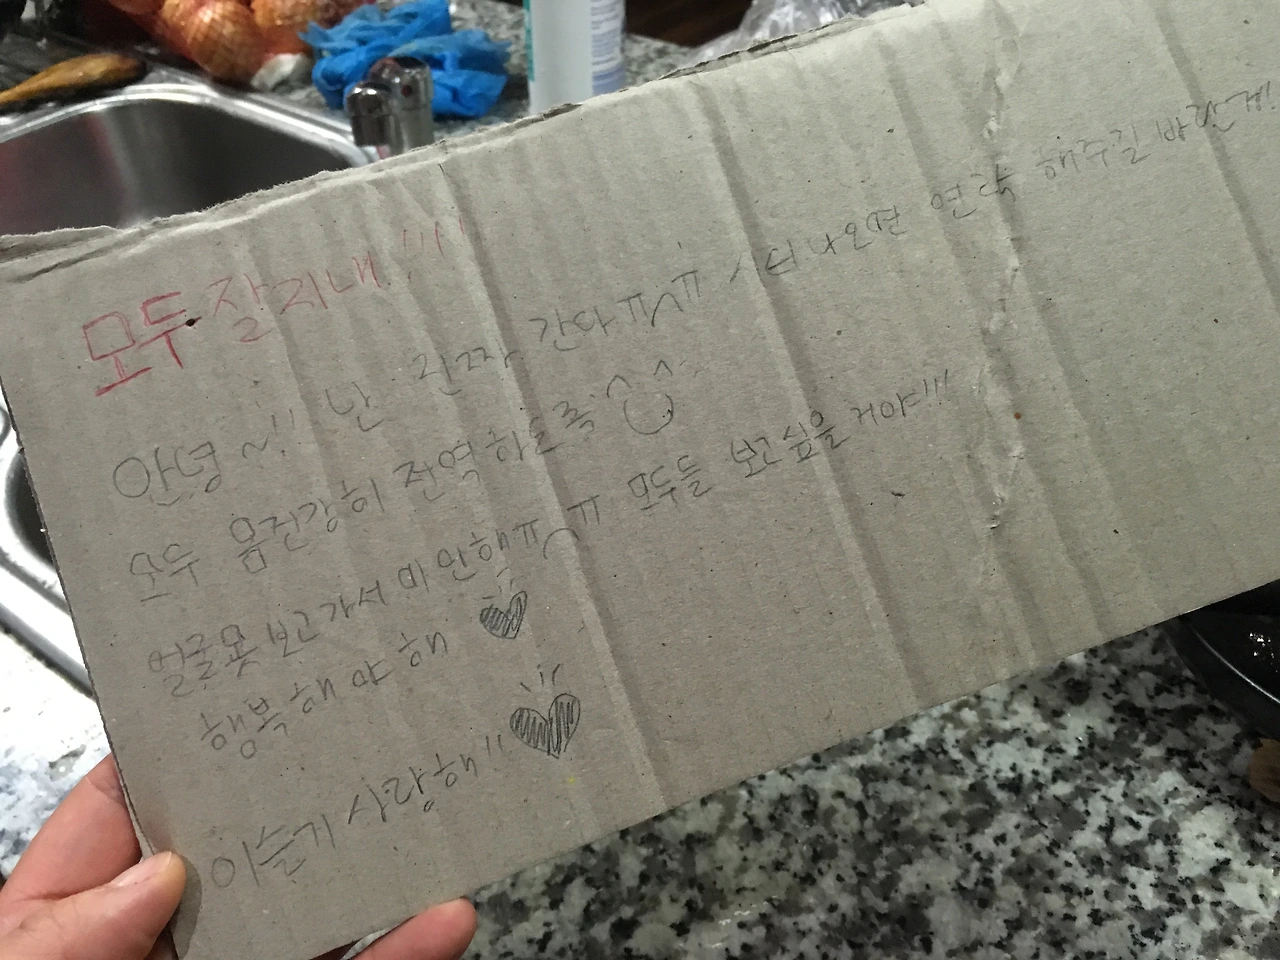 모두 잘지내!!!!
안녕~!! 난 진짜 간아ㅠ^ㅠ 시티 나오면 연락 해주길 바란게!
모두 몸건강히 전역하도록^^
얼굴못보고가서 미안해ㅠ^ㅠ 모두들 보고싶을거야!!!
행복해야해 ♥
이슬기 사랑해!! ♥